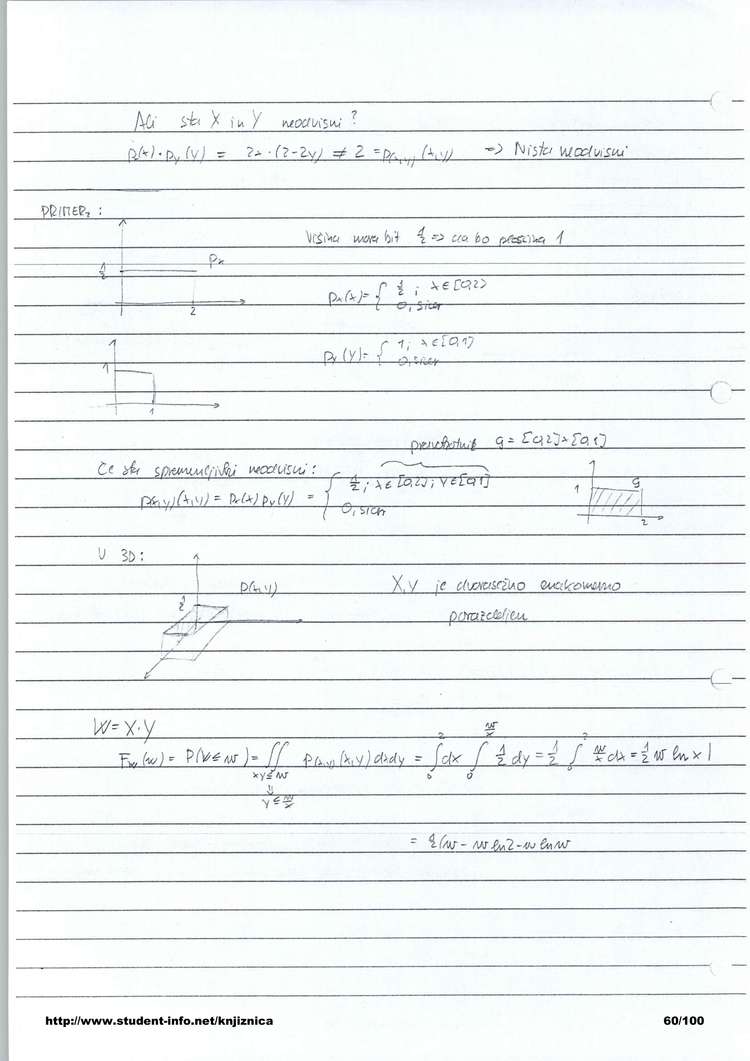 Ali sta X in Y neodvisni?
pₓ(x)·p_y(y) = 2x·(2-2y) ≠ 2 = p(x,y)(x,y) => Nista neodvisni
PRIMER:
Višina mora bit 1/2 => da bo ploščina 1
1/2 pₓ
2
pₓ(x) = { 1/2 ; x∈[0,2]
0, sicer
1
1
p_y(y) = { 1; x∈[0,1]
0, sicer
pravokotnik G = [0,2]×[0,1]
Če sta spremenljivki neodvisni:
p(x,y)(x,y) = pₓ(x) p_y(y) = { 1/2 ; x∈[0,2]; y∈[0,1]
0, sicer
1 G
2
V 3D:
1/2 p(x,y)
X,Y je dvorazsežno enakomerno
porazdeljen
W = X·Y
F_w(w) = P(W≤w) = ∬ p(x,y)(x,y) dxdy = ∫₀² dx ∫₀^(w/x) 1/2 dy = 1/2 ∫₀² w/x dx = 1/2 w ln x |
xy≤w
⇓
y≤w/x
= 1/2(w - w ln2 - w ln w
http://www.student-info.net/knjiznica 60/100